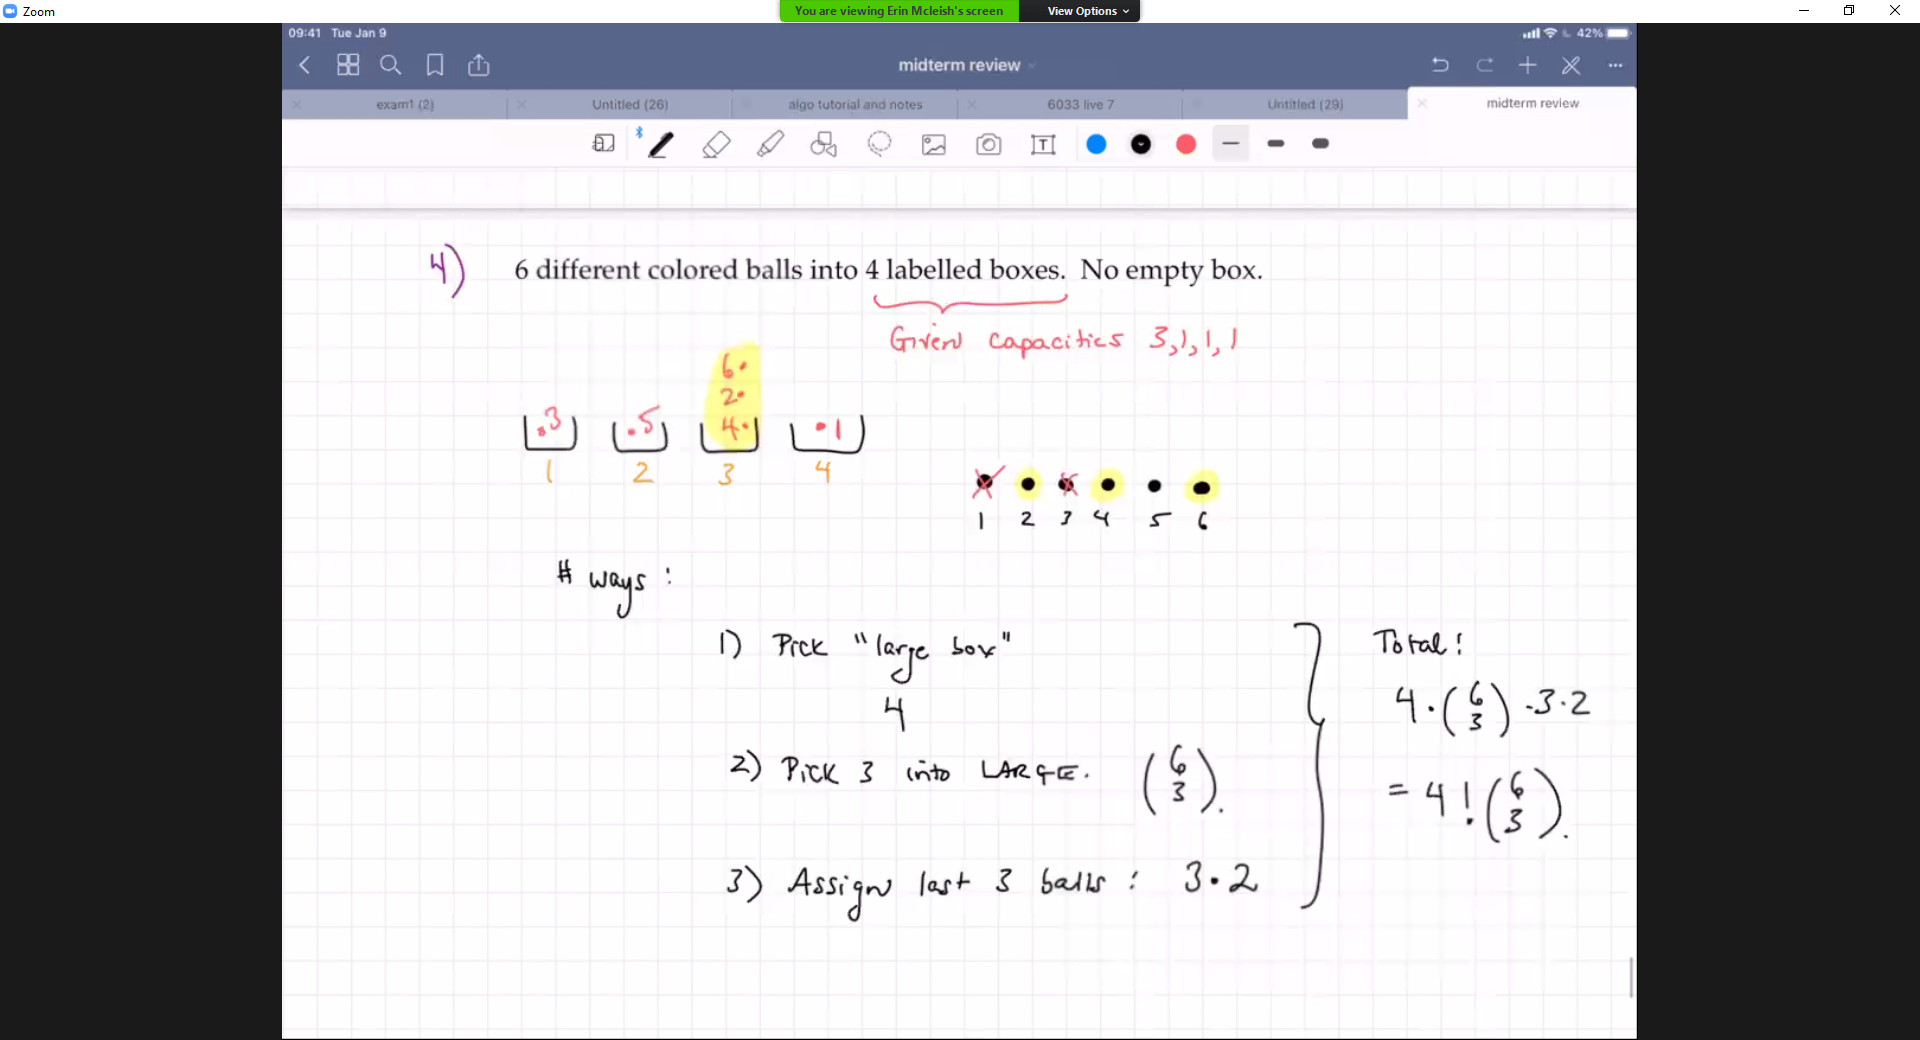 Zoom
You are viewing Erin Mcleish's screen View Options
09:41 Tue Jan 9 42%
midterm review
exam1 (2) Untitled (26) algo tutorial and notes 6033 live 7 Untitled (29) midterm review
T
4) 6 different colored balls into 4 labelled boxes. No empty box.
Given capacities 3,1,1,1
6.
2.
.3 .5 4. .1
1 2 3 4
1 2 3 4 5 6
# ways :
1) Pick "large box"
4
2) Pick 3 into LARGE. (6 3).
3) Assign last 3 balls : 3·2
Total:
4·(6 3)·3·2
= 4!(6 3).